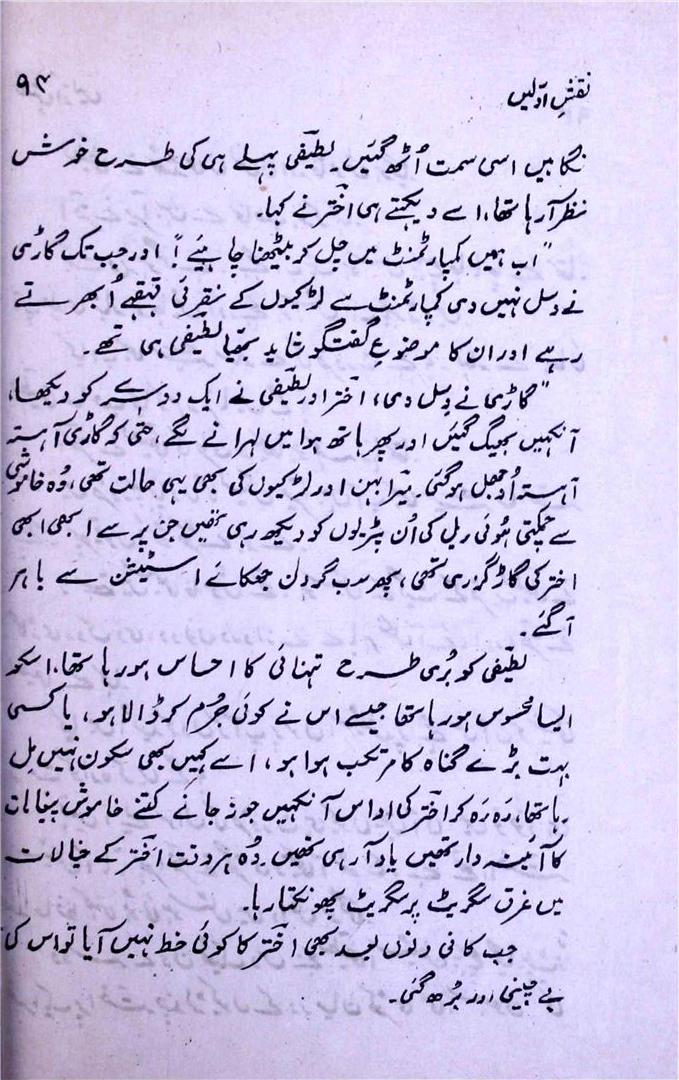 نقشِ اوّلیں
۹۴
نگاہیں اسی سمت اُٹھ گئیں۔ لطیفی پہلے ہی کی طرح خموش
نظر آ رہا تھا، اسے دیکھتے ہی اختر نے کہا۔
"اب ہمیں کمپارٹمنٹ میں چل کر بیٹھنا چاہیئے! اور جب تک گاڑی
نے وسل نہیں دی کمپارٹمنٹ سے لڑکیوں کے نقرئی قہقہے اُبھرتے
رہے اور ان کا موضوعِ گفتگو شاید بھیّا لطیفی ہی تھے۔
"گاڑی نے وِسل دی، اختر اور لطیفی نے ایک دوسرے کو دیکھا،
آنکھیں بھیگ گئیں اور پھر ہاتھ ہوا میں لہرانے لگے، حتیٰ کہ گاڑی آہستہ
آہستہ اُوجھل ہو گئی۔ تیرا بہن اور لڑکیوں کی بھی یہی حالت تھی، وُہ خاموشی
سے چمکتی ہُوئی ریل کی اُن پٹریوں کو دیکھ رہی تھیں جن پر سے ابھی ابھی
اختر کی گاڑ گزری تھی، پھر سب گردن جھکائے اسٹیشن سے باہر
آ گئے۔
لطیفی کو بُری طرح تنہائی کا احساس ہو رہا تھا، اسکو
ایسا محسوس ہو رہا تھا جیسے اس نے کوئی جُرم کر ڈالا ہو، یا کسی
بہت بڑے گناہ کا مرتکب ہوا ہو، اسے کہیں بھی سکون نہیں مِل
رہا تھا، رَہ رَہ کر اختر کی اداس آنکھیں جو نہ جانے کتنے خاموش پیغامات
کا آئینہ دار تھیں یاد آ رہی تھیں۔ وُہ ہر وقت اختر کے خیالات
میں غرق سگریٹ پر سگریٹ پھونکتا رہا۔
جب کافی دنوں بعد بھی اختر کا کوئی خط نہیں آیا تو اس کی
بے چینی اور بڑھ گئی۔